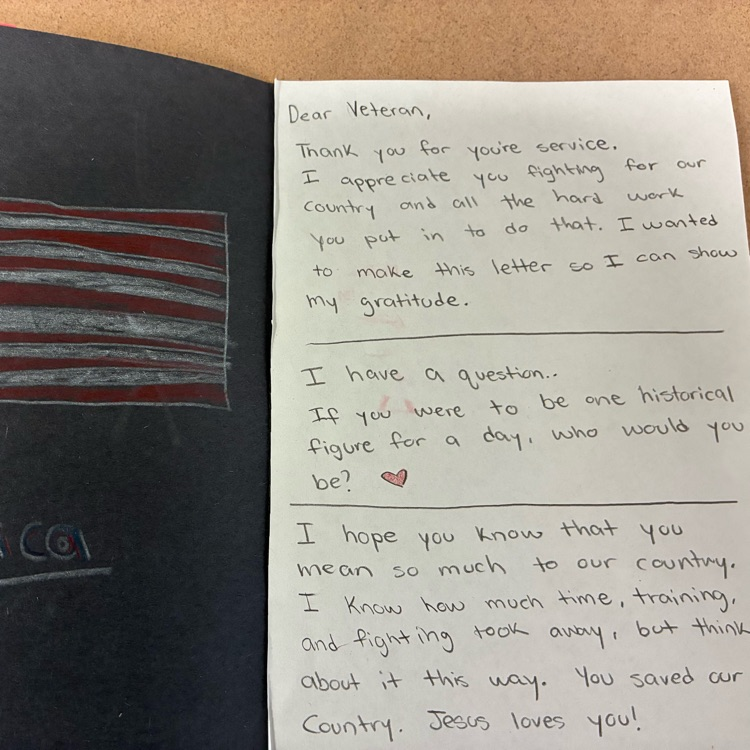 ica
Dear Veteran,
Thank you for you're service.
I appreciate you fighting for our
country and all the hard work
you put in to do that. I wanted
to make this letter so I can show
my gratitude.
I have a question..
If you were to be one historical
figure for a day, who would you
be?
I hope you know that you
mean so much to our country.
I know how much time, training,
and fighting took away, but think
about it this way. You saved our
Country. Jesus loves you!